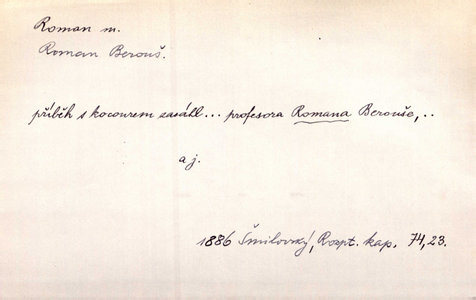 Roman m.
Roman Berouš.
příběh s kocourem zasáhl... profesora Romana Berouše,..
a j.
1886 Šmilovský, Rozpt. kap. 74,23.